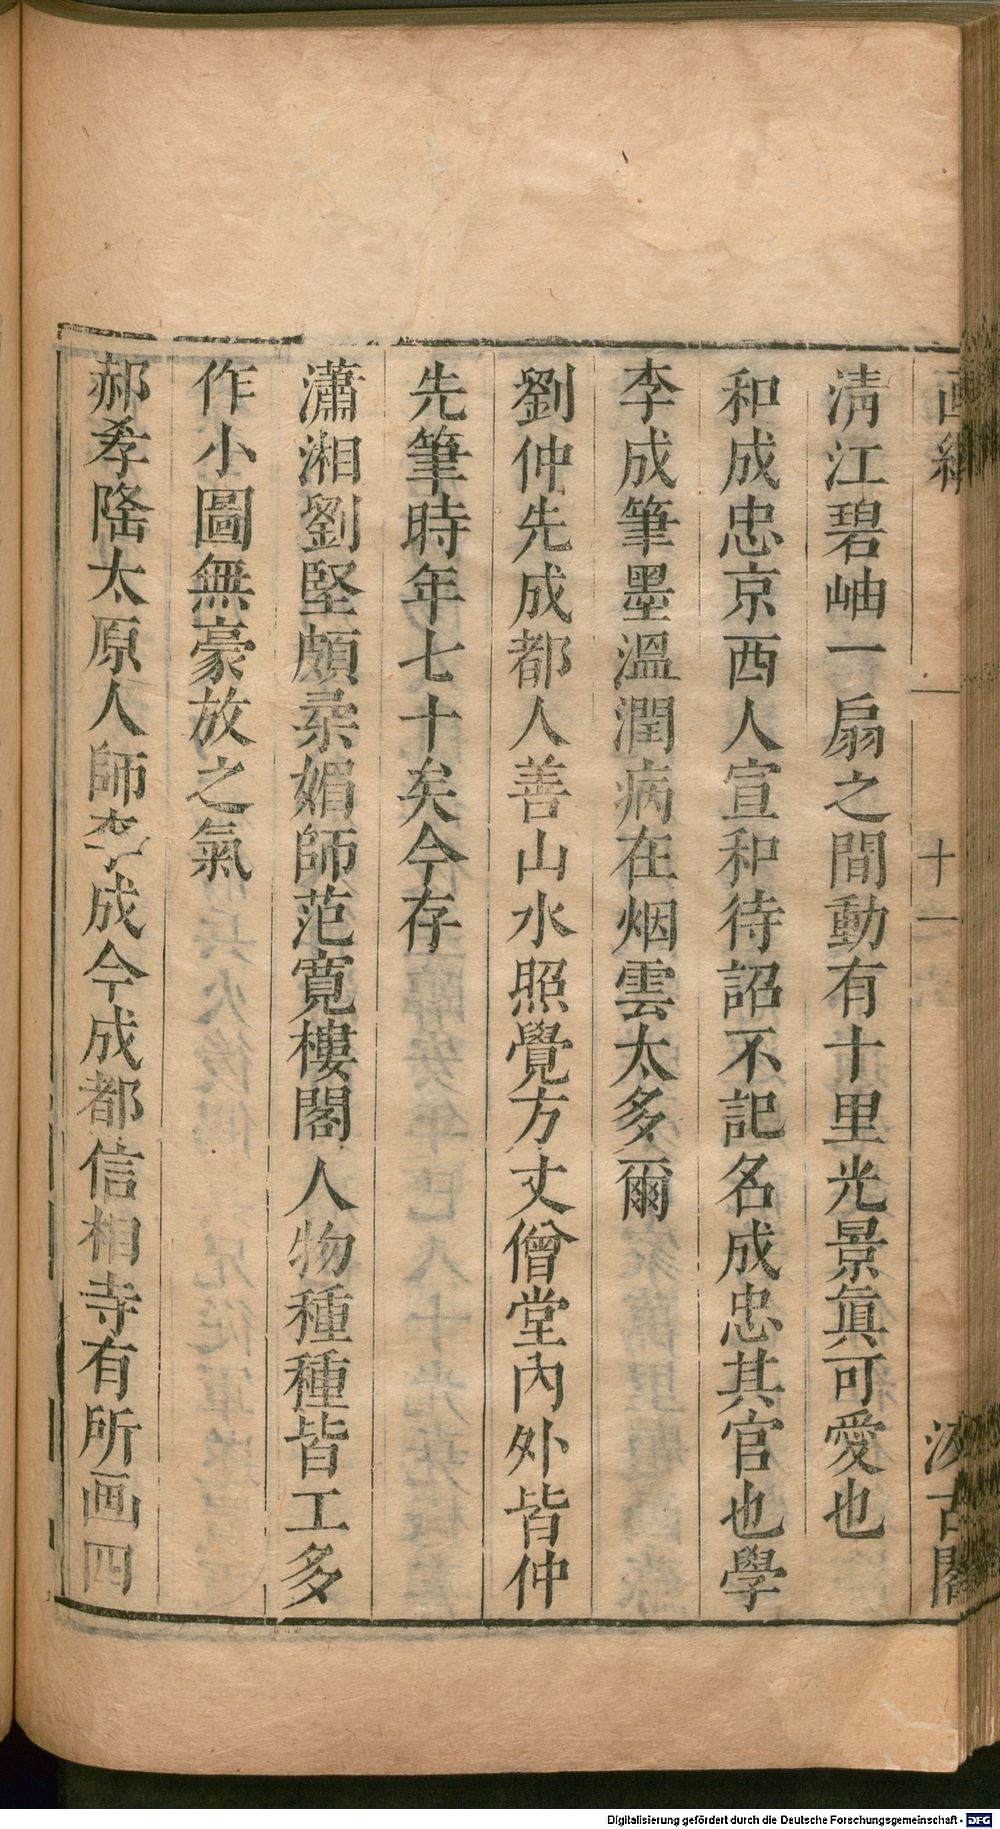 画繼
十一
汲古閣
清江碧岫一扇之間動有十里光景眞可愛也
和成忠京西人宣和待詔不記名成忠其官也學
李成筆墨溫潤病在烟雲太多爾
劉仲先成都人善山水照覺方丈僧堂內外皆仲
先筆時年七十矣今存
瀟湘劉堅頗柔媚師范寬樓閣人物種種皆工多
作小圖無豪放之氣
郝孝隆太原人師李成今成都信相寺有所画四
Digitalisierung gefördert durch die Deutsche Forschungsgemeinschaft - DFG